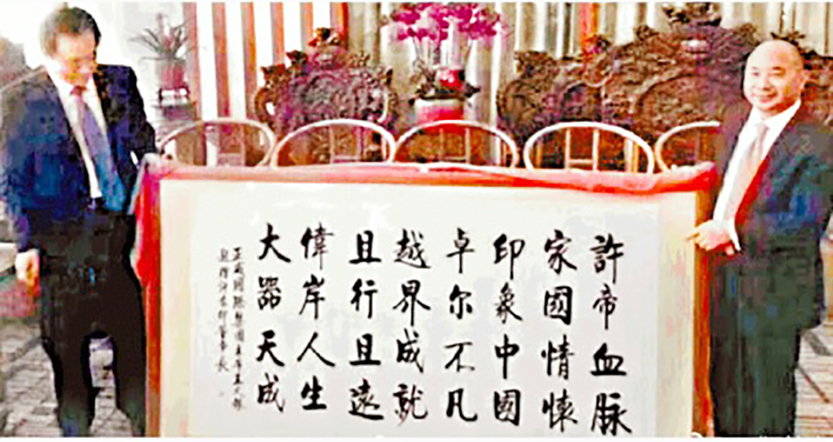 許帝血脉
家國情懐
印象中國
卓尔不凡
越界成就
且行且遠
偉岸人生
大器天成